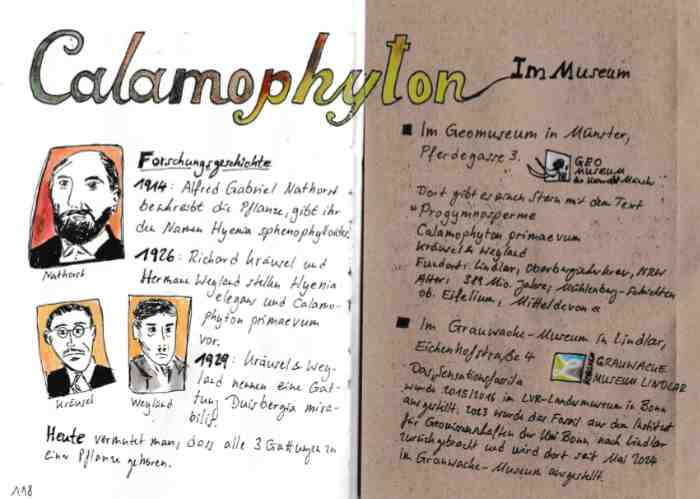 Calamophyton
Im Museum
Forschungsgeschichte
1914: Alfred Gabriel Nathorst
beschreibt die Pflanze, gibt ihr
den Namen Hyenia sphenophylloides.
1926: Richard Kräusel und
Hermann Weyland stellen Hyenia
elegans und Calamo-
phyton primaevum
vor.
1929: Kräusel & Wey-
land nennen eine Gat-
tung Duisbergia mira-
bilis.
Heute vermutet man, dass alle 3 Gattungen zu
einer Pflanze gehören.
Nathorst
Kräusel
Weyland
118
Im Geomuseum in Münster,
Pferdegasse 3.
GEO
MUSEUM
Dort gibt es einen Stern mit dem Text
"Progymnosperme
Calamophyton primaevum
Kräusel & Weyland
Fundort: Lindlar, Oberbergischer Kreis, NRW
Alter: 388 Mio. Jahre, Mühlenberg-Schichten
ob. Eifelium, Mitteldevon"
Im Grauwacke-Museum in Lindlar,
Eichenhofstraße 4
GRAUWACKE
MUSEUM LINDLAR
Das "Sensationsfossil"
wurde 2015/2016 im LVR-Landesmuseum in Bonn
ausgestellt. 2023 wurde das Fossil aus dem Institut
für Geowissenschaften der Uni Bonn nach Lindlar
zurückgebracht und wird dort seit Mai 2024
im Grauwacke-Museum ausgestellt.